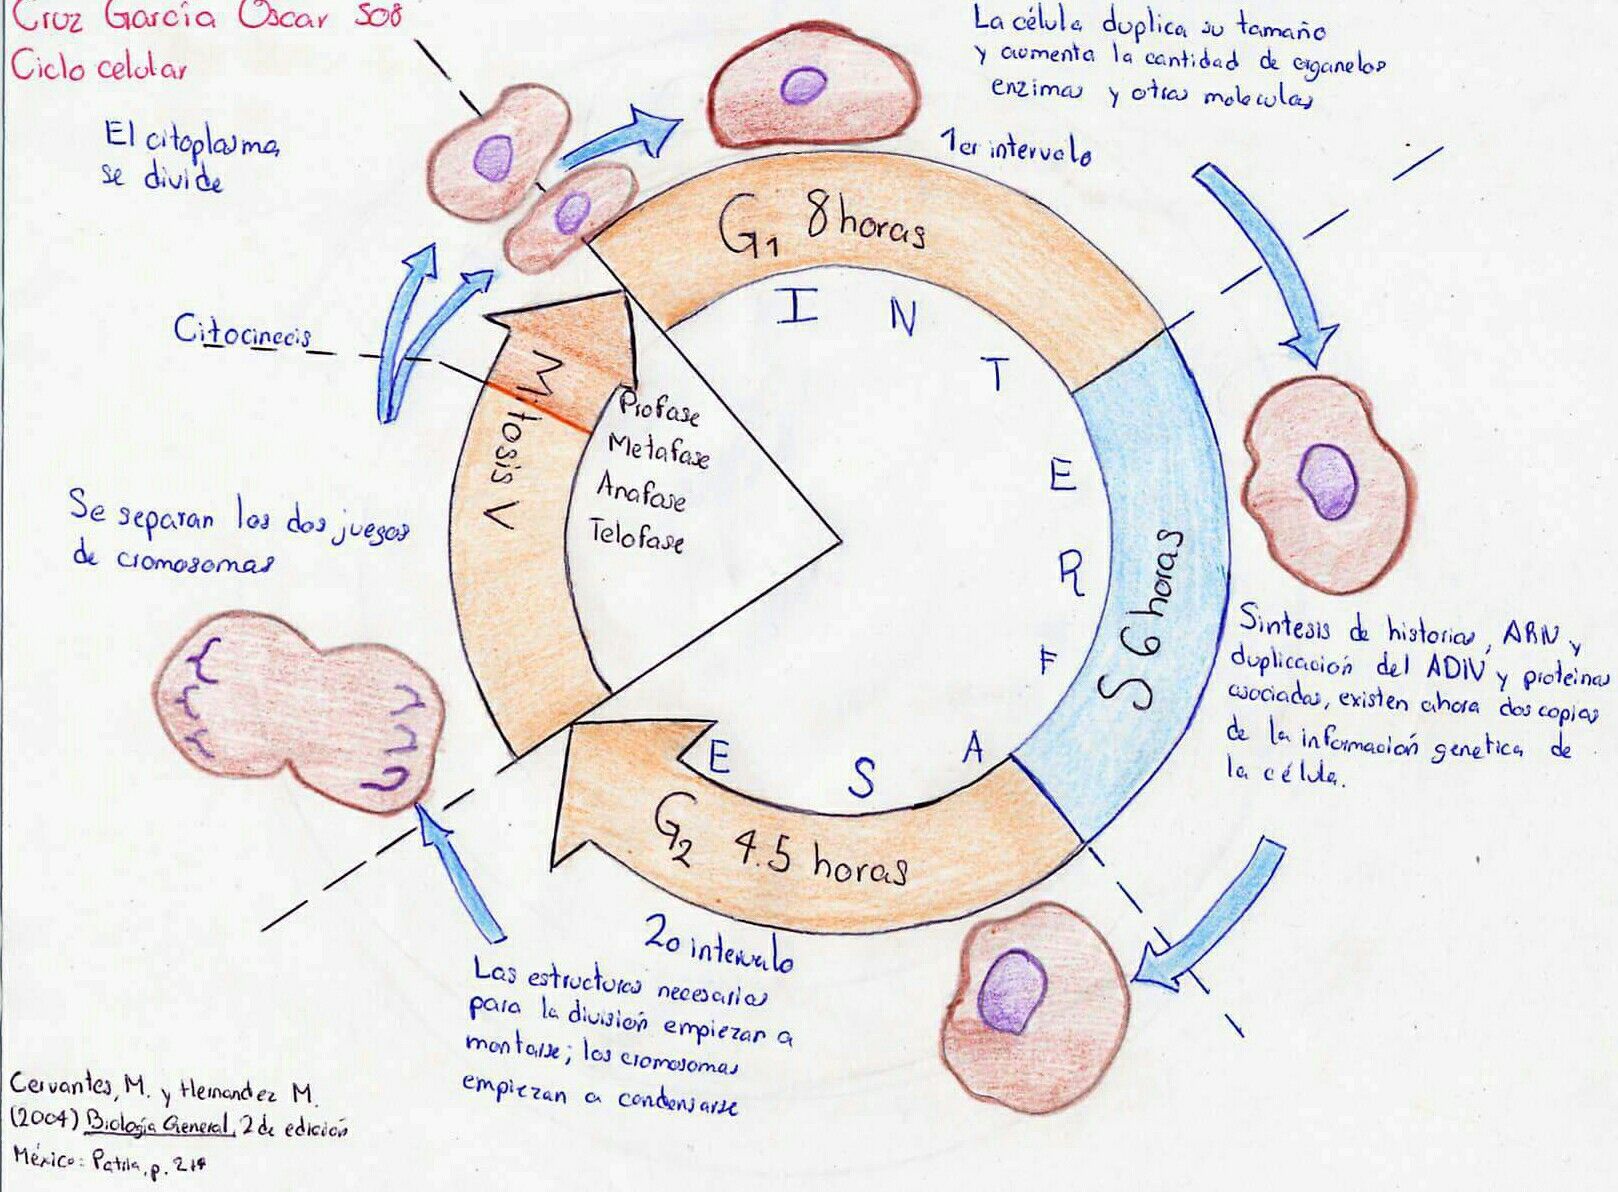 Cruz García Oscar 508
Ciclo celular
La célula duplica su tamaño
y aumenta la cantidad de organelos
enzimas y otras moleculas
1er intervalo
El citoplasma
se divide
G1 8 horas
INTERFASE
Citocinecis
Mitosis V
Profase
Metafase
Anafase
Telofase
S 6 horas
Se separan los dos juegos
de cromosomas
Sintesis de historias, ARN y
duplicación del ADN y proteinas
asociadas, existen ahora dos copias
de la información genetica de
la célula.
G2 4.5 horas
2o intervalo
Las estructuras necesarias
para la división empiezan a
montarse; los cromosomas
empiezan a condensarse
Cervantes, M. y Hernandez M.
(2004) Biología General, 2 de edición
México: Patria, p.